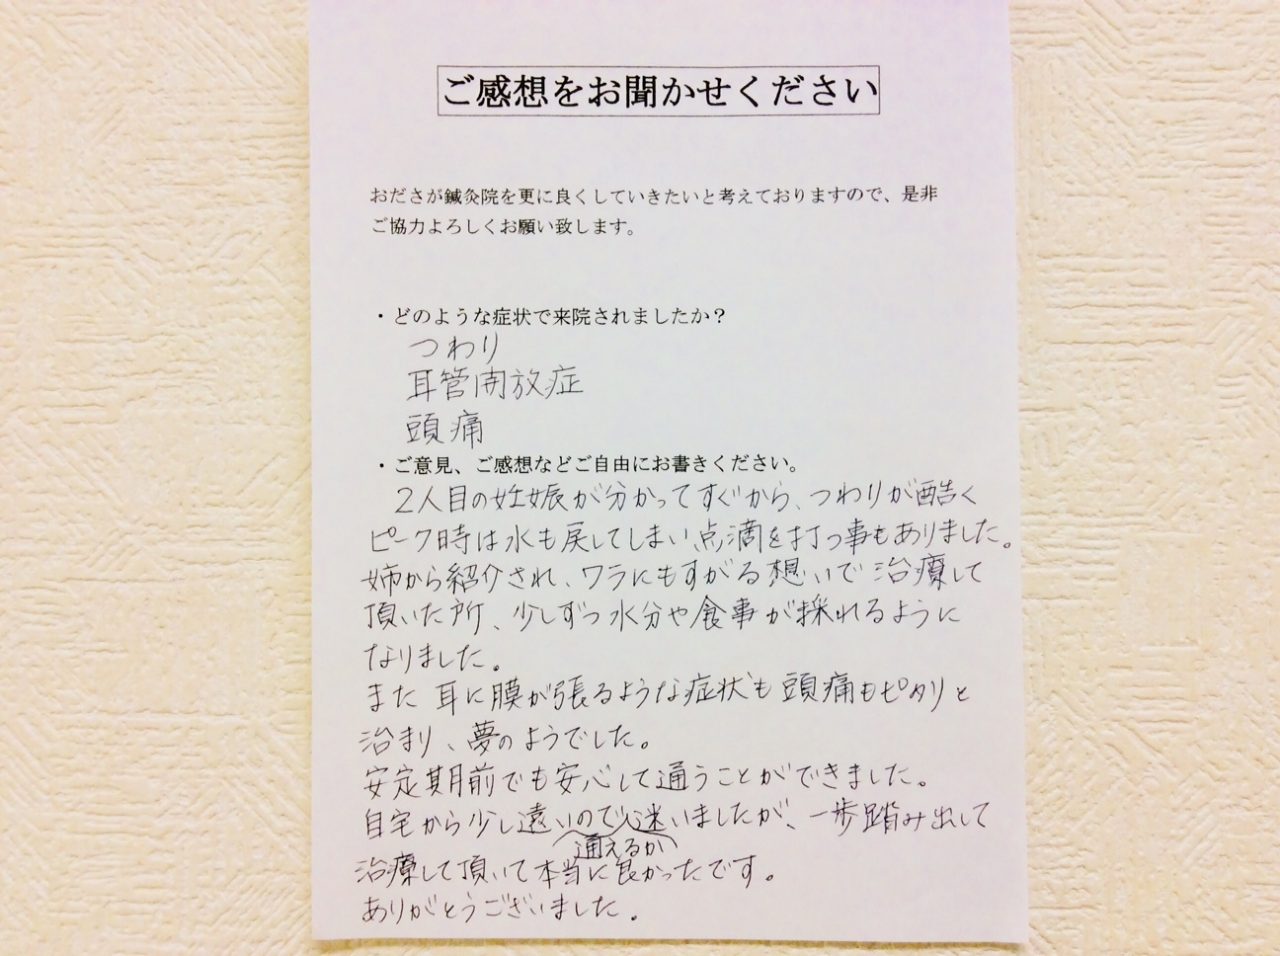 ご感想をお聞かせください
おださが鍼灸院を更に良くしていきたいと考えておりますので、是非
ご協力よろしくお願い致します。
・どのような症状で来院されましたか？
つわり
耳管開放症
頭痛
・ご意見、ご感想などご自由にお書きください。
2人目の妊娠が分かってすぐから、つわりが酷く
ピーク時は水も戻してしまい点滴を打つ事もありました。
姉から紹介され、ワラにもすがる想いで治療して
頂いた所、少しずつ水分や食事が採れるように
なりました。
また耳に膜が張るような症状も頭痛もピタリと
治まり、夢のようでした。
安定期前でも安心して通うことができました。
自宅から少し遠いので通えるか迷いましたが、一歩踏み出して
治療して頂いて本当に良かったです。
ありがとうございました。